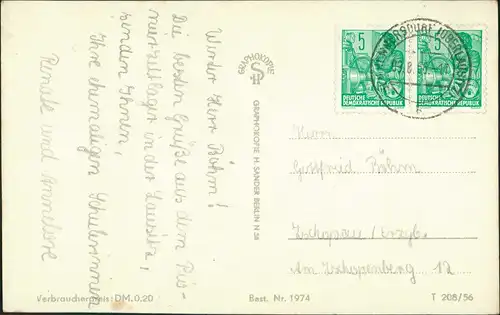 Werter Herr Böhm!
Die besten Grüße aus dem Pio-
nierzeltlager in der Lausitz,
senden Ihnen,
Ihre ehemaligen Schülerinnen
Renate und Annelore
GRAPHOKOPIE
GRAPHOKOPIE H. SANDER BERLIN N 58
5
DEUTSCHE
DEMOKRATISCHE REPUBLIK
5
DEUTSCHE
DEMOKRATISCHE REPUBLIK
Herrn
Gottfried Böhm
Zschopau / Erzgb.
Am Zschopenberg 12
Verbraucherpreis: DM.0.20
Best. Nr. 1974
T 208/56